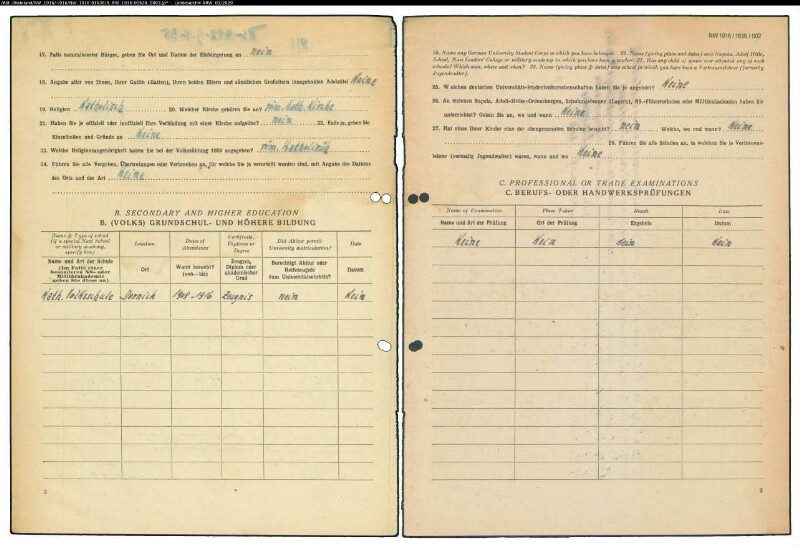 17. Falls naturalisierter Bürger, geben Sie Ort und Datum der Einbürgerung an nein
18. Angabe aller von Ihnen, Ihrer Gattin (Gatten), Ihren beiden Eltern und sämtlichen Großeltern innegehabten Adelstitel Keine
19. Religion Katholisch 20. Welcher Kirche gehören Sie an? röm. Kath. Kirche
21. Haben Sie je offiziell oder inoffiziell Ihre Verbindung mit einer Kirche aufgelöst? nein 22. Falls ja, geben Sie
Einzelheiten und Gründe an Keine
23. Welche Religionszugehörigkeit haben Sie bei der Volkszählung 1939 angegeben? röm. Katholisch
24. Führen Sie alle Vergehen, Übertretungen oder Verbrechen an, für welche Sie je verurteilt worden sind, mit Angabe des Datums
des Orts und der Art Keine
B. SECONDARY AND HIGHER EDUCATION
B. (VOLKS) GRUNDSCHUL- UND HÖHERE BILDUNG
Name & Type of school (if a special Nazi School or military academy, specify this) Location Dates of Attendance Certificate, Diploma or Degree Did Abitur permit University matriculation? Date
Name und Art der Schule (Im Falle einer besonderen NS- oder Militärakademie geben Sie diese an) Ort Wann besucht? (von—bis) Zeugnis, Diplom oder akademischer Grad Berechtigt Abitur oder Reifezeugnis zum Universitätseintritt? Datum
Kath. Volksschule Dornick 1909-1916 Zeugnis nein Kein
2
NW 1016 / 1638 / 002
24. Name any German University Student Corps to which you have belonged. 25. Name (giving place and dates) any Napola, Adolf Hitler
School, Nazi Leaders' College or military academy in which you have been a teacher. 27. Has any child of yours ever attended any of such
schools? Which ones, where and when? 28. Name (giving place & dates) any school in which you have been a Vertrauenslehrer (formerly
Jugendwalter).
25. Welchen deutschen Universitäts-Studentenburschenschaften haben Sie je angehört? Keine
26. An welchen Napola, Adolf-Hitler-Ordensburgen, Schulungsburgen (Lagern), NS.-Führerschulen oder Militärakademien haben Sie
unterrichtet? Geben Sie an, wo und wann Keine
27. Hat eines Ihrer Kinder eine der obengenannten Schulen besucht? nein Welche, wo und wann? Keine
28. Führen Sie alle Schulen an, in welchen Sie je Vertrauens-
lehrer (vormalig Jugendwalter) waren, wann und wo Keine
C. PROFESSIONAL OR TRADE EXAMINATIONS
C. BERUFS- ODER HANDWERKSPRÜFUNGEN
Name of Examination Place Taken Result Date
Name und Art der Prüfung Ort der Prüfung Ergebnis Datum
Keine Kein Kein Kein
3